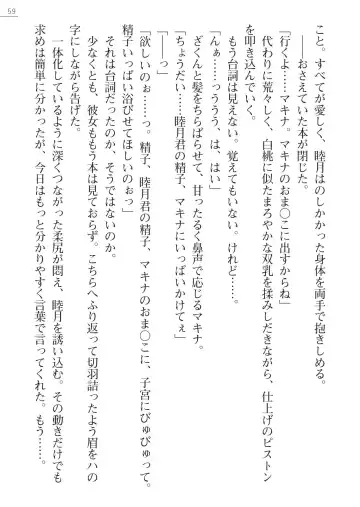 59
こと。すべてが愛しく、睦月はのしかかった身体を両手で抱きしめる。
おさえていた本が閉じた。
「行くよ……マキナ。マキナのおま〇こに出すからね」
代わりに荒々しく、白桃に似たまろやかな双乳を揉みしだきながら、仕上げのピストン
を叩き込んでいく。
もう台詞は見えない。覚えてもいない。けれど……。
「んぁ……っううう、は、はい」
ざくんと髪をちらばらせて、甘ったるく鼻声で応じるマキナ。
「ちょうだい……睦月君の精子、マキナにいっぱいかけてぇ」
「――っ」
「欲しいのぉ……っ。精子、睦月君の精子、マキナのおま〇こに、子宮にびゅびゅって。
精子いっぱい浴びせてほしいのぉっ」
それは台詞だったのか、そうではないのか。
少なくとも、彼女ももう本は見ておらず。こちらへふり返って切羽詰ったよう眉をハの
字にしながら告げた。
一体化しているように深くつながった柔尻が悶え、睦月を誘い込む。その動きだけでも
求めは簡単に分かったが、今日はもっと分かりやすく言葉で言ってくれた。もう……。